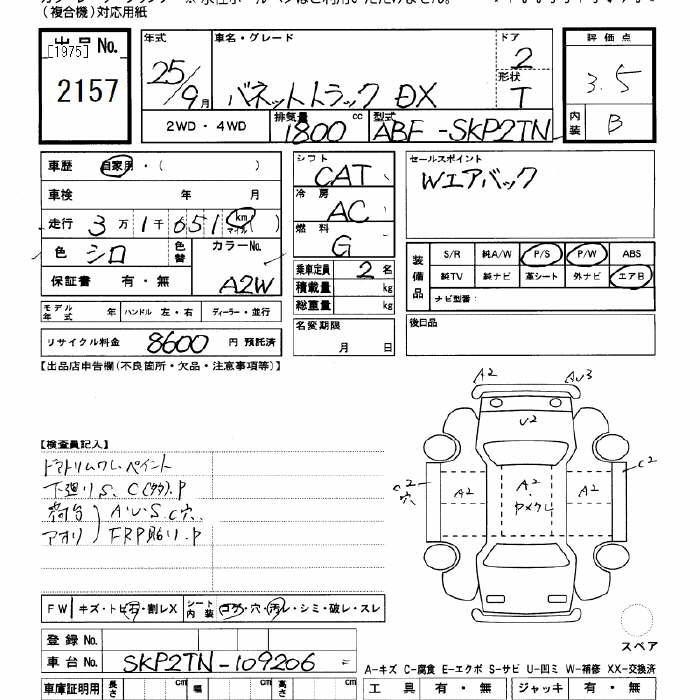 （複合機）対応用紙
出品No. [1975] 2157
年式 25/9月
車名・グレード バネットトラック DX
ドア 2
形状 T
評価点 3.5
内装 B
2WD・4WD
排気量 1800 cc
型式 ABF-SKP2TN
車歴 自家用・（ ）
車検 年 月
走行 3万1千651 km マイル（ ）
色 シロ 色替 カラーNo. A2W
保証書 有・無
シフト CAT
冷房 AC
燃料 G
乗車定員 2名
積載量 kg
総重量 kg
名変期限 月 日
セールスポイント
Wエアバック
装備品 S/R 純A/W P/S P/W ABS
純TV 純ナビ 革シート 外ナビ エアB
ナビ型番：
後日品
モデル年式 年 ハンドル 左・右 ディーラー・並行
リサイクル料金 8600 円 預託済
【出品店申告欄(不良箇所・欠品・注意事項等)】
【検査員記入】
下廻りS、C(タタ).P
荷台 AUS.C穴、
アオリ FRP貼り.P
A2 AU3
U2
C2穴 A2 A2 ヤメケレ A2 C2
FW キズ・トビ石・割レX シート内装 コゲ・穴・汚レ・シミ・破レ・スレ
登録No.
車台No. SKP2TN-109206
スペア
A-キズ C-腐食 E-エクボ S-サビ U-凹ミ W-補修 XX-交換済
車庫証明用 長さ cm 幅 cm 高さ cm
工具 有・無 ジャッキ 有・無